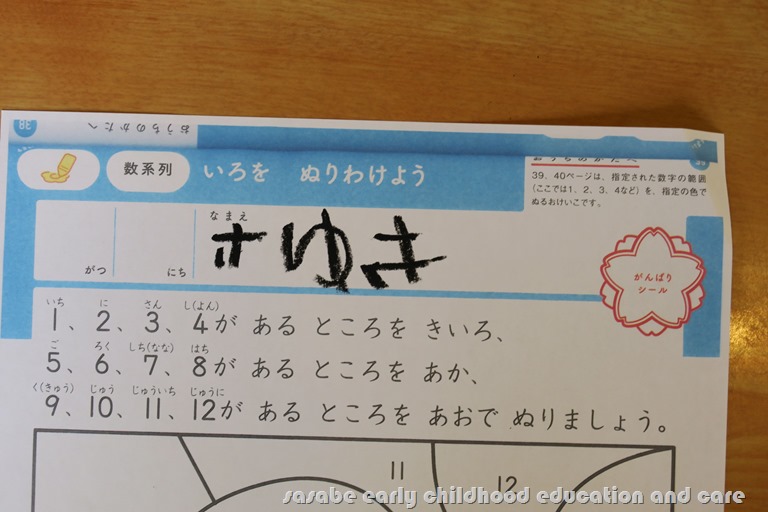 38
おうちのかたへ
数系列
いろを ぬりわけよう
おうちのかたへ
39、40ページは、指定された数字の範囲
(ここでは1、2、3、4など)を、指定の色で
ぬるおけいこです。
がつ
にち
なまえ
さゆき
がんばり
シール
いち に さん し(よん)
1、2、3、4が ある ところを きいろ、
ご ろく しち(なな) はち
5、6、7、8が ある ところを あか、
く(きゅう) じゅう じゅういち じゅうに
9、10、11、12が ある ところを あおで ぬりましょう。
11
12
sasabe early childhood education and care